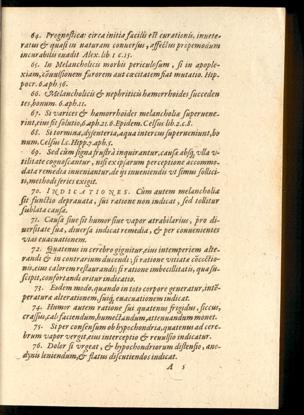 64. Prognosticæ: circa initia facilis est curationis, inuete-
ratus & quasi in naturam conuersus, affectus propemodum
incurabilis euadit Alex. lib. 1 c. 15.
65. In Melancholicis morbis periculosum, si in apople-
xiam, cōuulsionem furorem aut cæcitatem fiat mutatio. Hip-
pocr. 6. aph. 56.
66. Melancholicis & nephriticis hæmorrhoides succeden
tes, bonum. 6. aph. 11.
67. Si varices & hæmorrhoides melancholia superuene-
rint, eius fit solutio, 6. aph. 21. & 6. Epidem. Celsus lib. 2. c. 8.
68. Si tormina, dysenteria, aqua intercus superueniunt, bo-
num. Celsus l. c. Hipp. 7. aph. 5.
69. Sed cùm signa frustrà inquirantur, causa absq; vlla v-
tilitate cognoscantur, nisi ex ipsarum perceptione accommo-
data remedia inueniantur, de ijs inueniendis vt simus sollici-
ti, methodi series exigit.
70. INDICATIONES. Cùm autem melancholia
sit functio deprauata, sui ratione non indicat, sed tollitur
sublata causa.
71. Causa siue sit humor siue vapor atrabilarius, pro di-
uersitate sua, diuersa indicat remedia, & per conuenientes
vias euacuationem.
72. Quatenus in cerebro gignitur, eius intemperiem alte-
randi & in contrarium ducendi; si ratione vitiatæ cōcoctio-
nis, eius calorem restaurandi; si ratione imbecillitatis, qua su-
scipit, confortandi oritur indicatio.
73. Eodem modo, quando in toto corpore generatur, intē-
peratura alterationem, suiq; euacuationem indicat.
74. Humor autem ratione sui quatenus frigidus, siccus,
crassus, calefaciendum, humectandum, attenuandum monet.
75. Si per consensum ob hypochondria, quatenus ad cere-
brum vapor vergit, eius interceptio & reuulsio indicatur.
76. Dolor si vrgeat, & hypochondriorum distensio, ano-
dynis leniendum, & flatus discutiendos indicat.
A 5